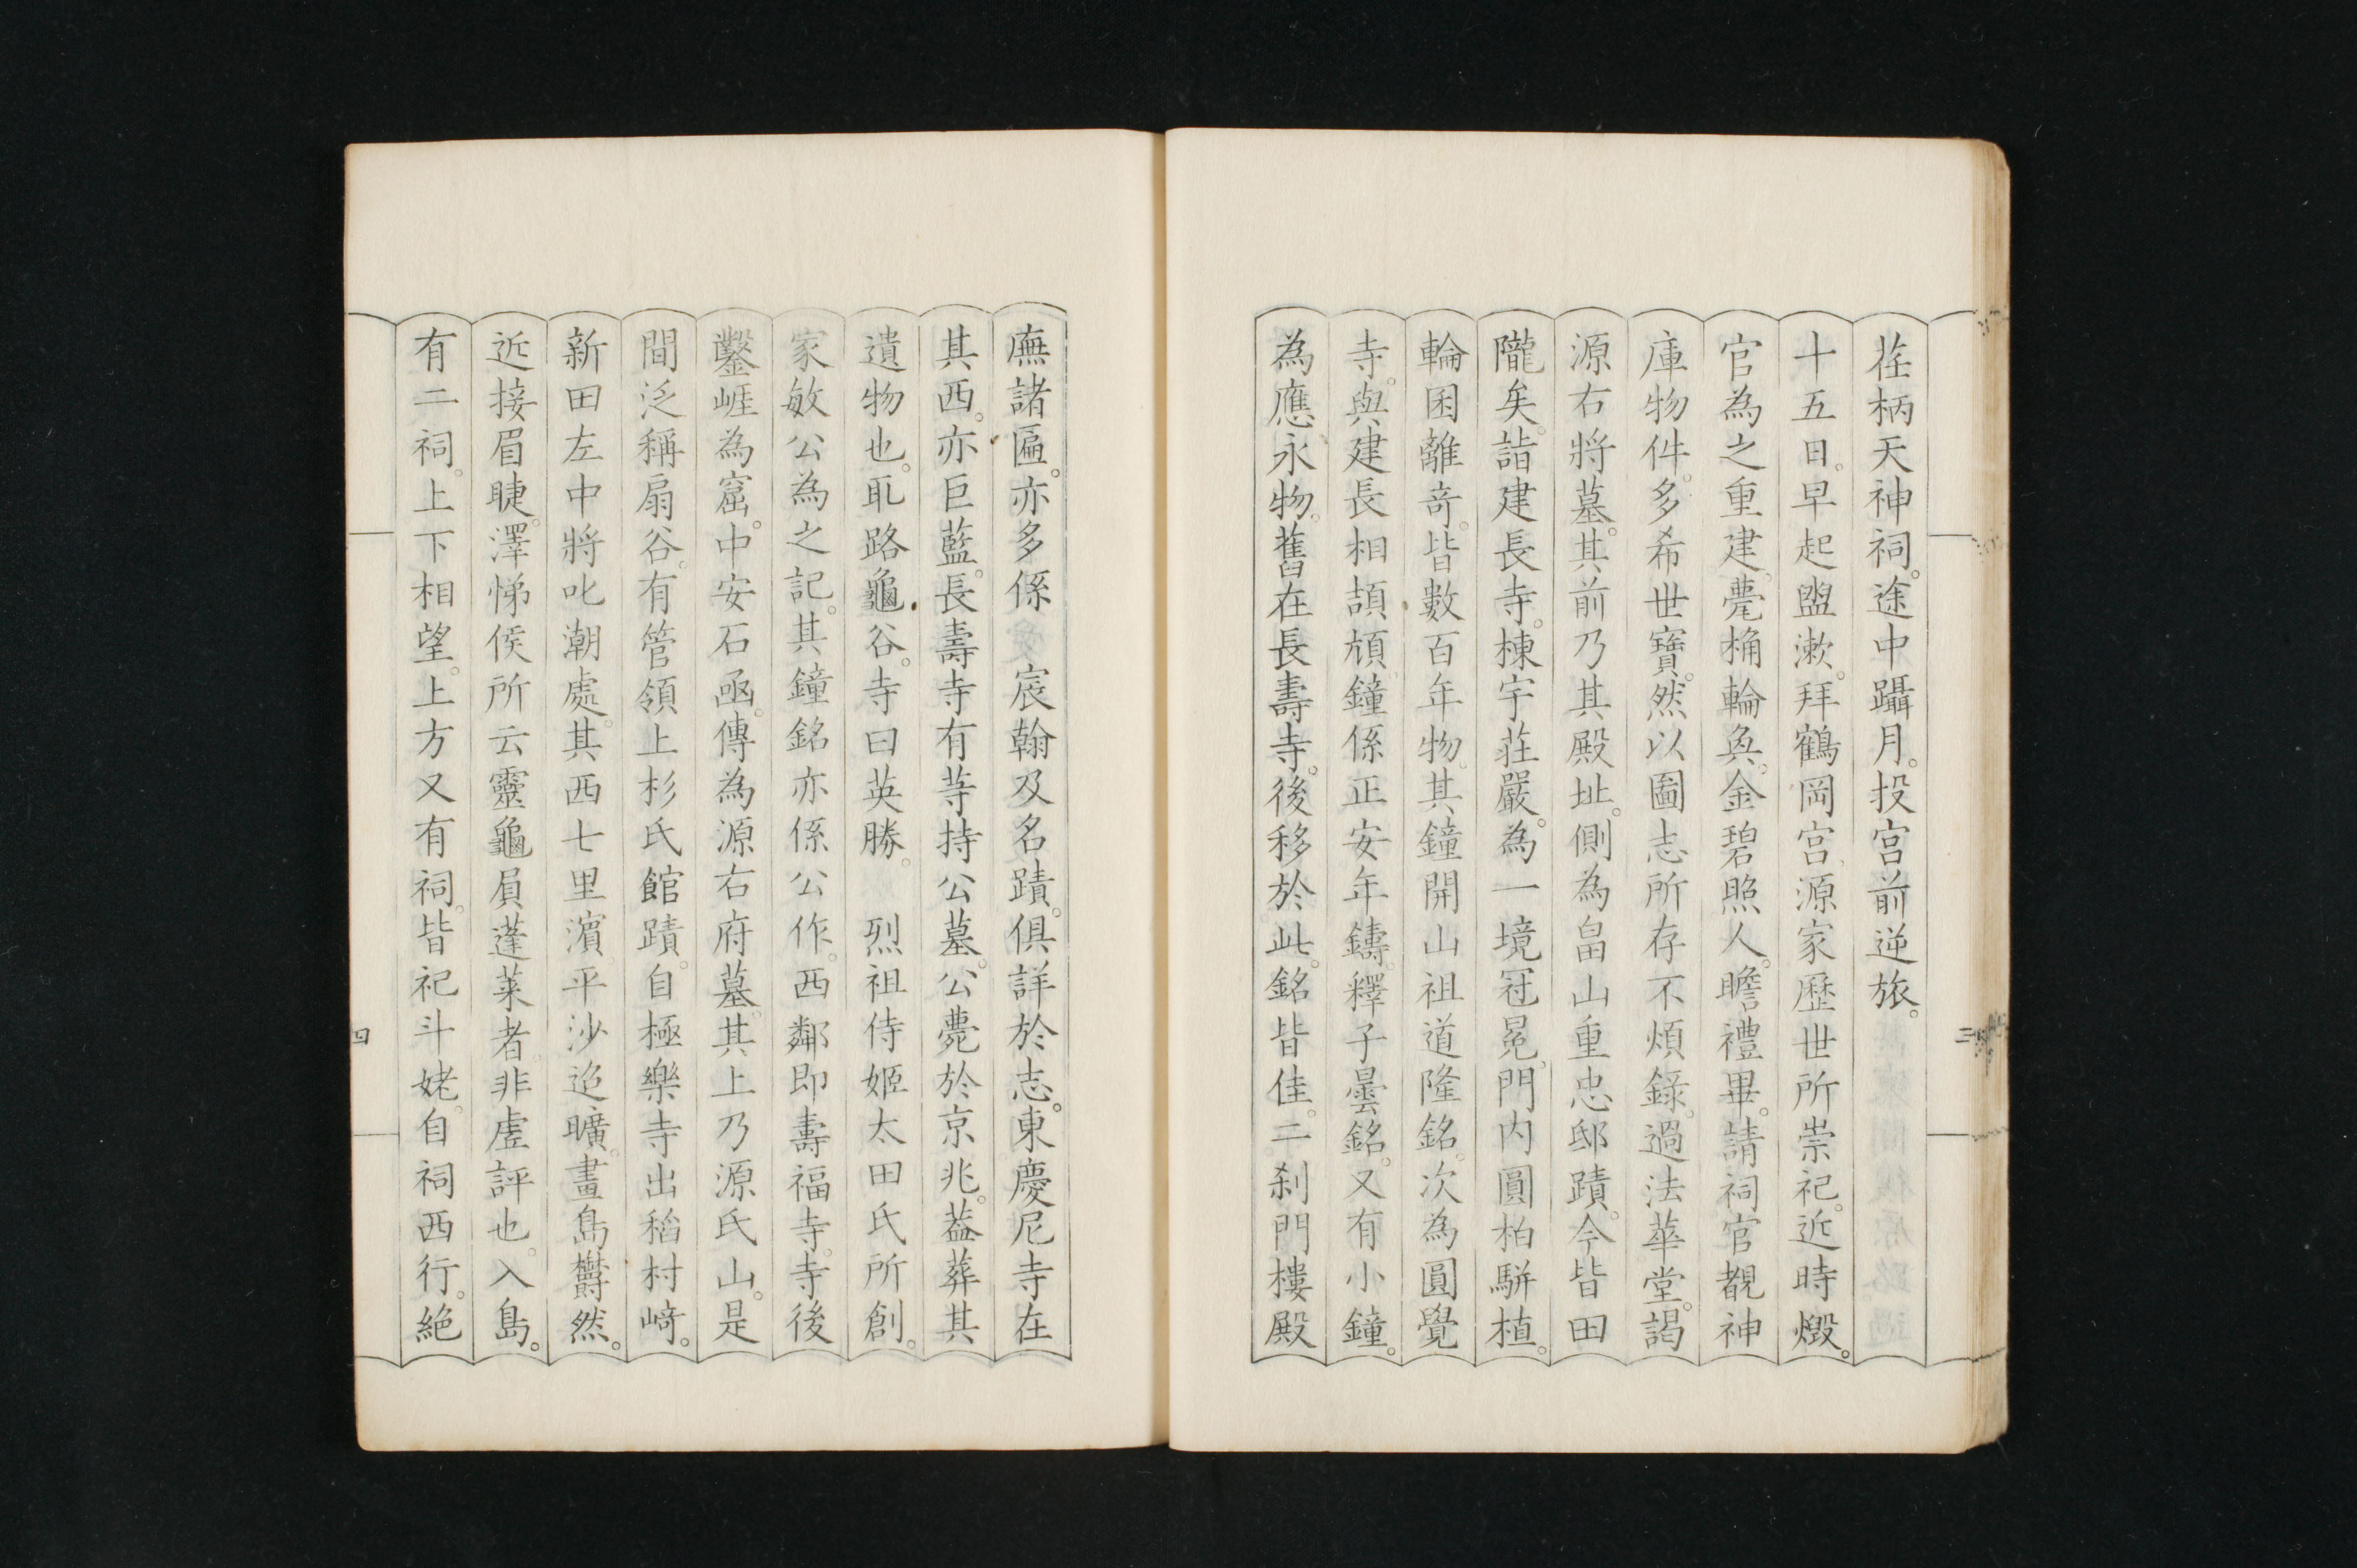 荏柄天神祠。途中躡月。投宮前逆旅。
十五日。早起盥漱。拜鶴岡宮、源家歷世所崇祀。近時燬。
官為之重建。甍桷輪奐。金碧照人。瞻禮畢。請祠官覩神
庫物件。多希世寶。然以圖志所存不煩錄。過法華堂。謁
源右將墓。其前乃其殿址。側為畠山重忠邸蹟。今皆田
隴矣。詣建長寺。棟宇莊嚴。為一境冠冕。門內圓柏駢植。
輪囷離奇。皆數百年物。其鐘開山祖道隆銘。次為圓覺
寺。與建長相頡頏。鐘係正安年鑄。釋子曇銘。又有小鐘。
為應永物。舊在長壽寺。後移於此。銘皆佳。二剎門樓殿
廡諸匾。亦多係 宸翰及名蹟。俱詳於志。東慶尼寺在
其西。亦巨藍。長壽寺有等持公墓。公薨於京兆。葢葬其
遺物也。取路龜谷。寺曰英勝。 烈祖侍姬太田氏所創。
家敏公為之記。其鐘銘亦係公作。西鄰即壽福寺。寺後
鑿崕為窟。中安石函。傳為源右府墓。其上乃源氏山。是
間泛稱扇谷。有管領上杉氏館蹟。自極樂寺出稻村﨑。
新田左中將叱潮處。其西七里濵。平沙迢曠。畫島欝然。
近接眉睫。澤悌侯所云靈龜屓蓬萊者。非虛評也。入島。
有二祠。上下相望。上方又有祠。皆祀斗姥。自祠西行。絶
三
四